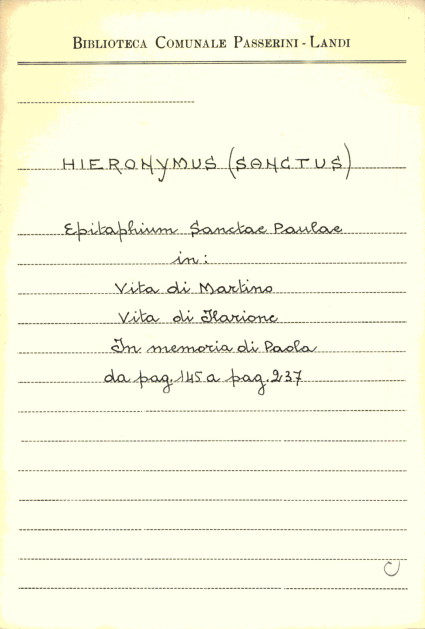 BIBLIOTECA COMUNALE PASSERINI - LANDI
HIERONYMUS (SANCTUS)
Epitaphium Sanctae Paulae
in:
Vita di Martino
Vita di Ilarione
In memoria di Paola
da pag. 145 a pag. 237